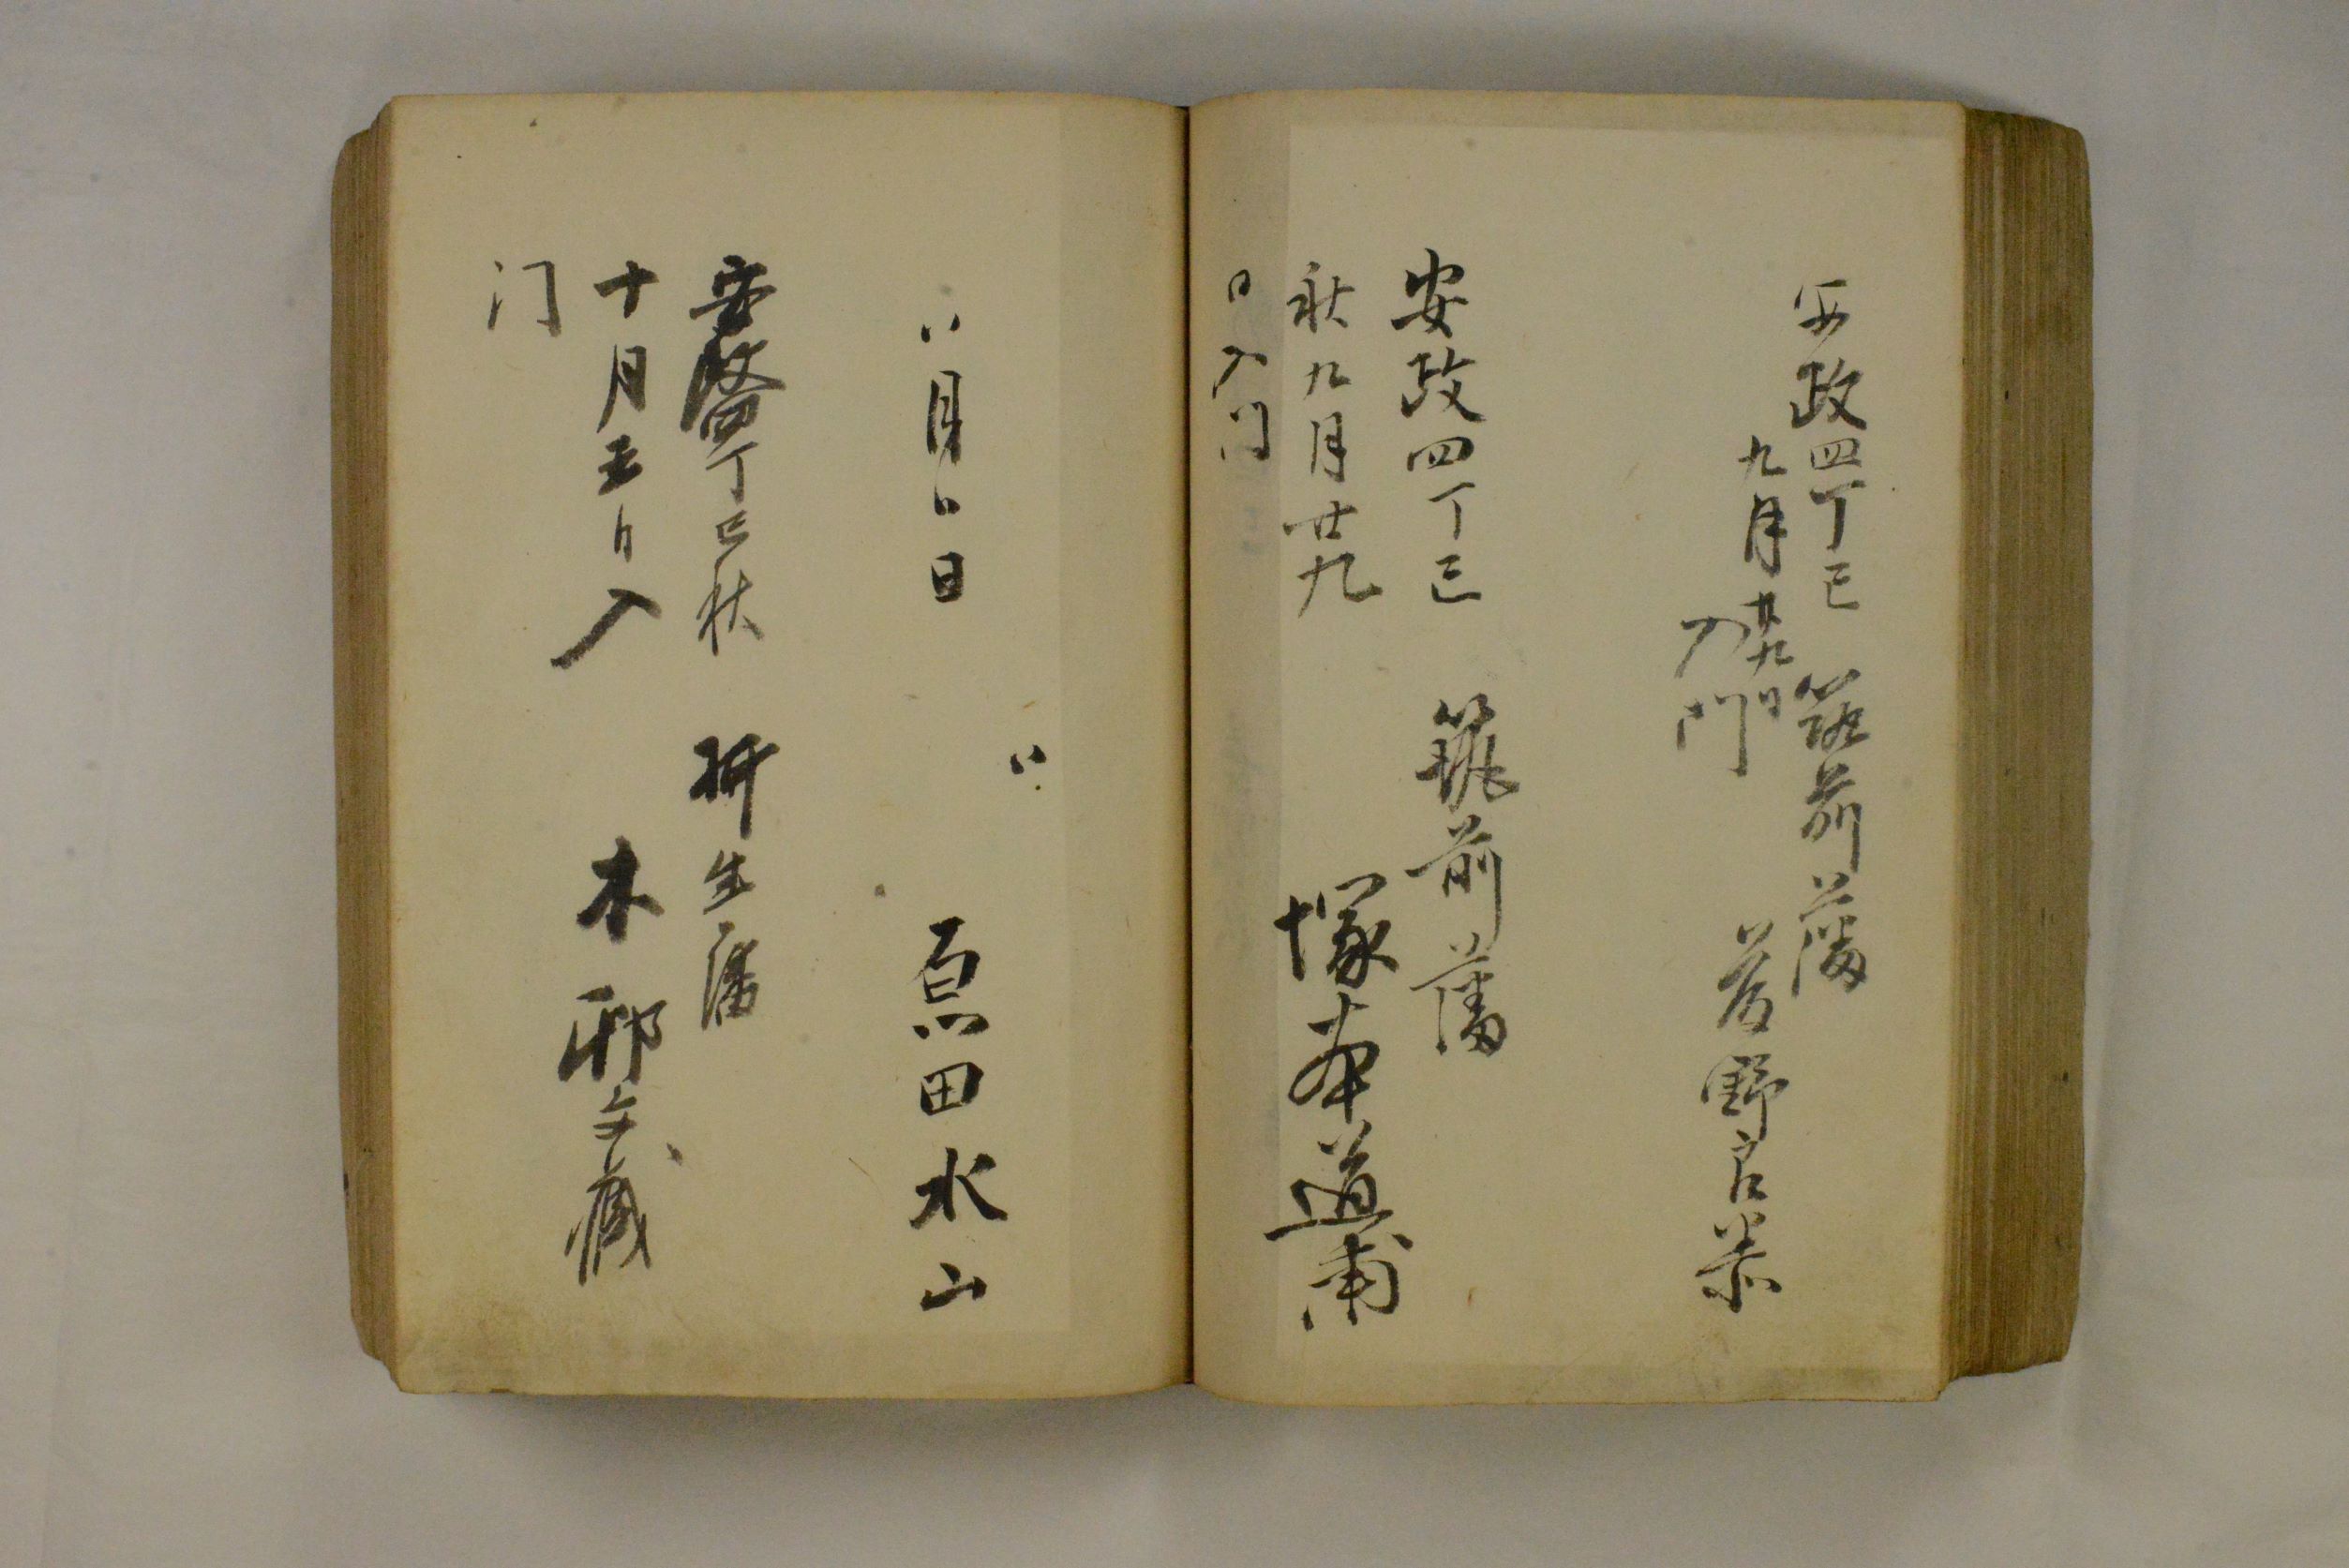 安政四丁巳 筑前藩
九月廿九日
入門 菅野良恭
安政四丁巳 筑前藩
秋九月廿九 塚本道甫
日入門
〃
〃月〃日 原田水山
安政四丁巳秋 柳生藩
十月五日入 木邨文蔵
门